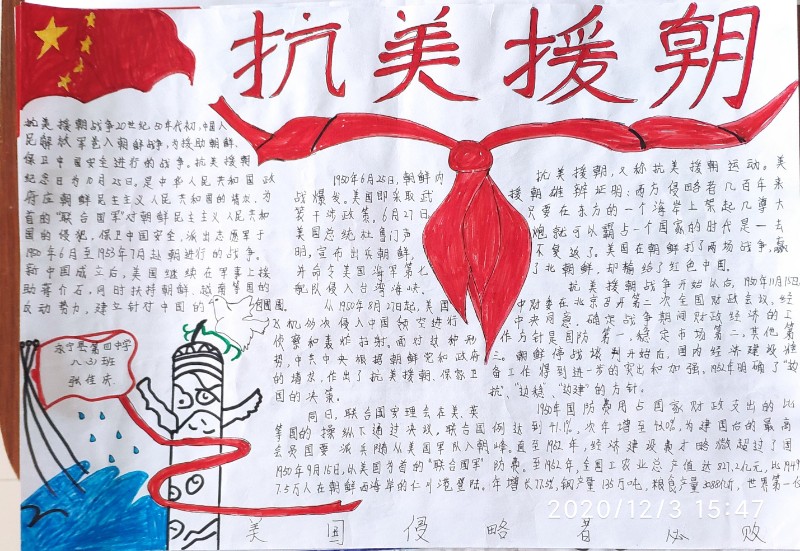 抗美援朝
抗美援朝战争20世纪50年代初,中国人
民解放军卷入朝鲜战争,为援助朝鲜、
保卫中国安全进行的战争。抗美援朝
纪念日为10月25日,是中华人民共和国政
府应朝鲜民主主义人民共和国的请求,为
首的“联合国军”对朝鲜民主主义人民共和
国的侵犯,保卫中国安全,派出志愿军于
1950年6月至1953年7月赴朝进行的战争。
新中国成立后,美国继续在军事上援
助蒋介石,同时扶持朝鲜、越南等国的
反动势力,建立针对中国的包围圈。
1950年6月25日,朝鲜内
战爆发。美国即采取武
装干涉政策。6月27日
美国总统杜鲁门声
明,宣布出兵朝鲜,
并命令美国海军第七
舰队侵入台湾海峡。
从1950年8月27日起,美国
飞机多次侵入中国领空进行
侦察和轰炸扫射。面对这种形
势,中共中央根据朝鲜党和政府
的请求,作出了抗美援朝、保家卫
国的决策。
同日,联合国安理会在美英
等国的操纵下通过决议,联合国
会员国要派兵随从美国军队入朝。
1950年9月15日,以美国为首的“联合国军”
7.5万人在朝鲜西海岸的仁川港登陆。
抗美援朝,又称抗美援朝运动。美
援朝雄辩证明:西方侵略者几百年来
只要在东方的一个海岸上架起几尊大
炮就可以霸占一个国家的时代是一去
不复返了。美国在朝鲜打了两场战争,赢
了北朝鲜,却输给了红色中国。
抗美援朝战争开始以后,1950年11月15日,
中财委在北京召开第二次全国财政会议,经
中央同意,确定战争期间财政经济的工
作方针是国防第一,稳定市场第二,其他第
三。朝鲜停战谈判开始后,国内经济建设准
备工作得到进一步的突出和加强,1952年明确了“边
抗”、“边稳”、“边建”的方针。
1950年国防费用占国家财政支出的比
例达到41.1%,次年增至
为建国后的最高
峰。直至1952年,经济建设费才略微超过了国
防费。至1952年,全国工农业总产值达827.2亿元,比1949
年增长77.5%,钢产量135万吨,粮食产量3088亿斤,世界第一位
永宁县第四中学
八(3)班
张佳庆
美国侵略者必败
2020/12/3 15:47